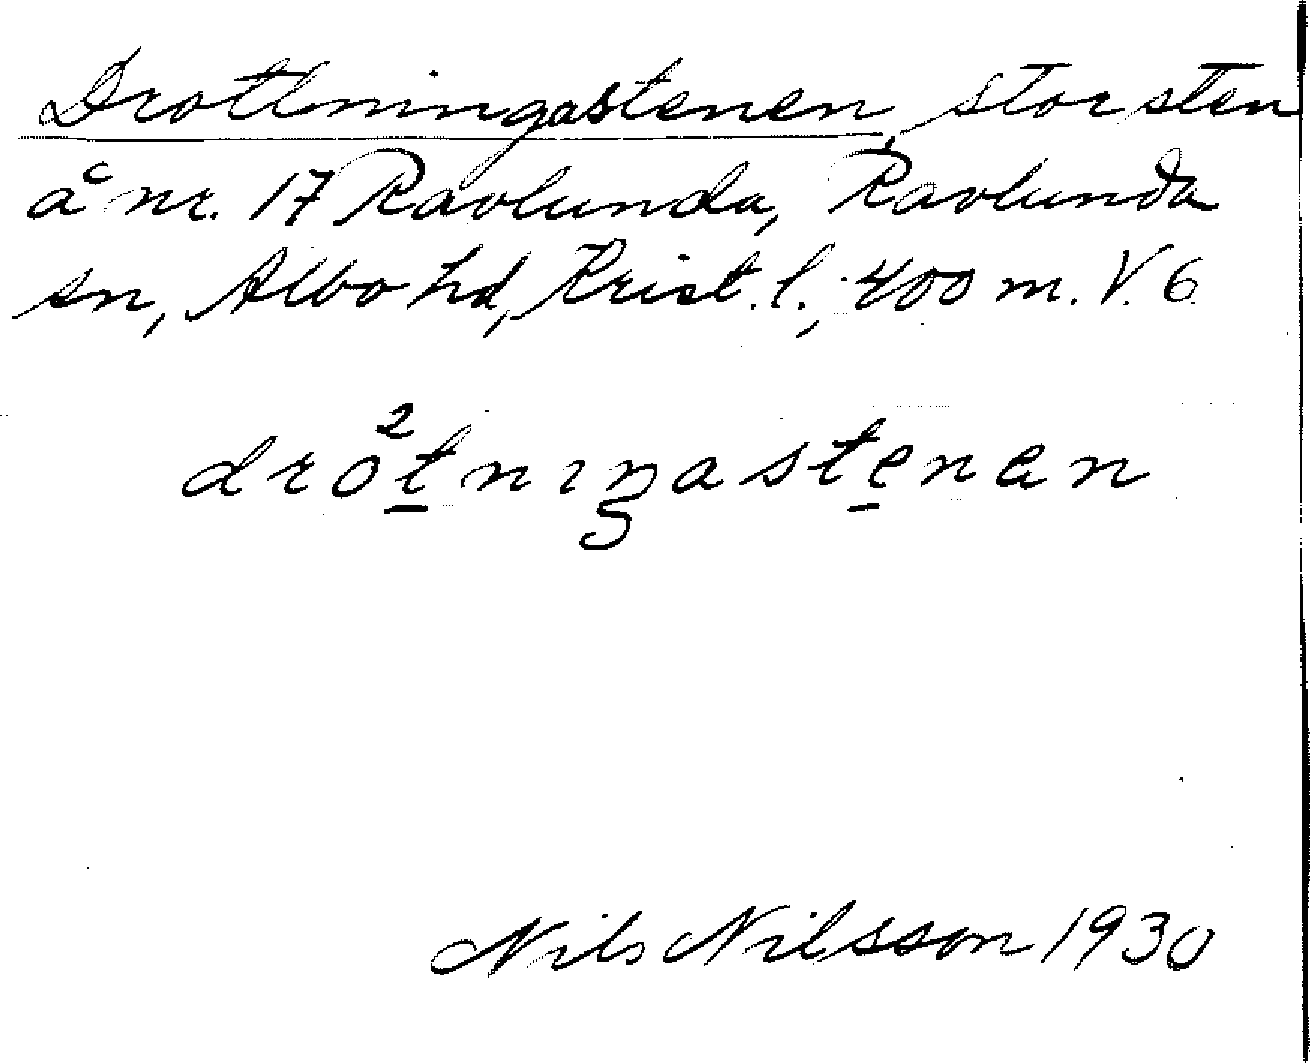 Drottningastenen, stor sten
å nr. 17 Ravlunda, Ravlunda
sn, Albo hd, Krist. l., 400 m. V. 6.
dro²tnıŋastenan
Nils Nilsson 1930